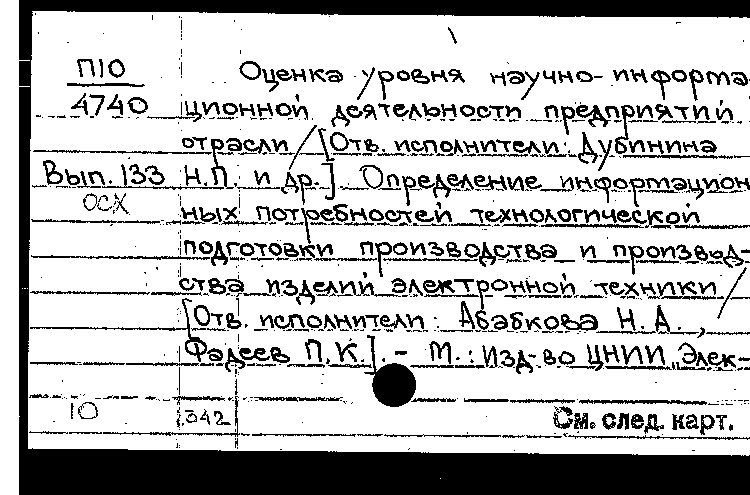 П10
4740
Вып. 133
ОСХ
Оценка уровня научно-информа-
ционной деятельности предприятий
отрасли / [Отв. исполнители: Дубинина
Н.П. и др.]. Определение информацион-
ных потребностей технологической
подготовки производства и производ-
ства изделий электронной техники /
[Отв. исполнители: Абабкова Н.А.,
Фадеев П.К.]. - М.: Изд-во ЦНИИ "Элек-
10
342
См. след. карт.